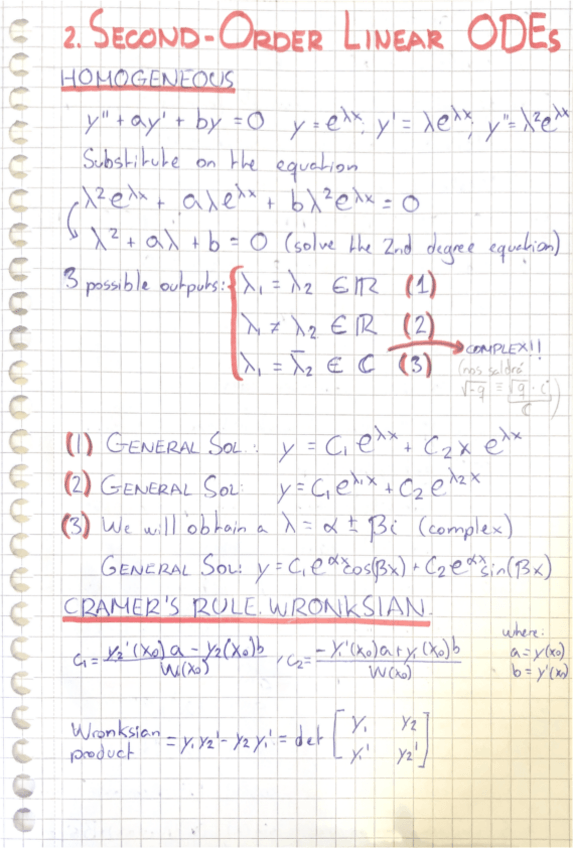 2. SECOND-ORDER LINEAR ODEs
HOMOGENEOUS
y'' + ay' + by = 0   y = e^{λx}; y' = λe^{λx}; y'' = λ²e^{λx}
Substitute on the equation
λ²e^{λx} + aλe^{λx} + bλ²e^{λx} = 0
λ² + aλ + b = 0 (solve the 2nd degree equation)
3 possible outputs: { λ₁ = λ₂ ∈ ℝ (1)
λ₁ ≠ λ₂ ∈ ℝ (2)
λ₁ = λ̄₂ ∈ ℂ (3) → COMPLEX!!
(nos saldrá
√-9 = √9 · i)
C
(1) GENERAL SOL: y = C₁e^{λx} + C₂x e^{λx}
(2) GENERAL SOL: y = C₁e^{λ₁x} + C₂e^{λ₂x}
(3) We will obtain a λ = α ± βi (complex)
GENERAL SOL: y = C₁e^{αx}cos(βx) + C₂e^{αx}sin(βx)
CRAMER'S RULE. WRONKSIAN.
C₁ = (y₂'(x₀)a - y₂(x₀)b) / W(x₀), C₂ = (-y₁'(x₀)a + y₁(x₀)b) / W(x₀)
where:
a = y(x₀)
b = y'(x₀)
Wronksian product = y₁y₂' - y₂y₁' = det [ y₁ y₂
y₁' y₂' ]